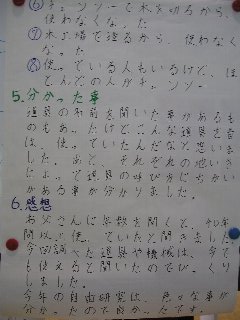 ⑥チェンソーで木を切るから、
使わなくなった
⑦木工場で塗るから、使わなく
なった。
⑧使っている人もいるけど、ほ
とんどの人がチェンソー
5.分かった事
道具の名前を聞いた事があるも
のもあったけどこんな道具を昔
は、使っていたんだなと思いま
した。あと、それぞれの地いき
によって道具の呼び方にちがい
がある事が分かりました。
6.感想
お父さんに年数を聞くと、
間以上使っていたと聞きました
今回調べた道具や機械は、今で
も使えると聞いたのでびっくり
しました。
今年の自由研究は、色々な事が
分かったので良かったです。